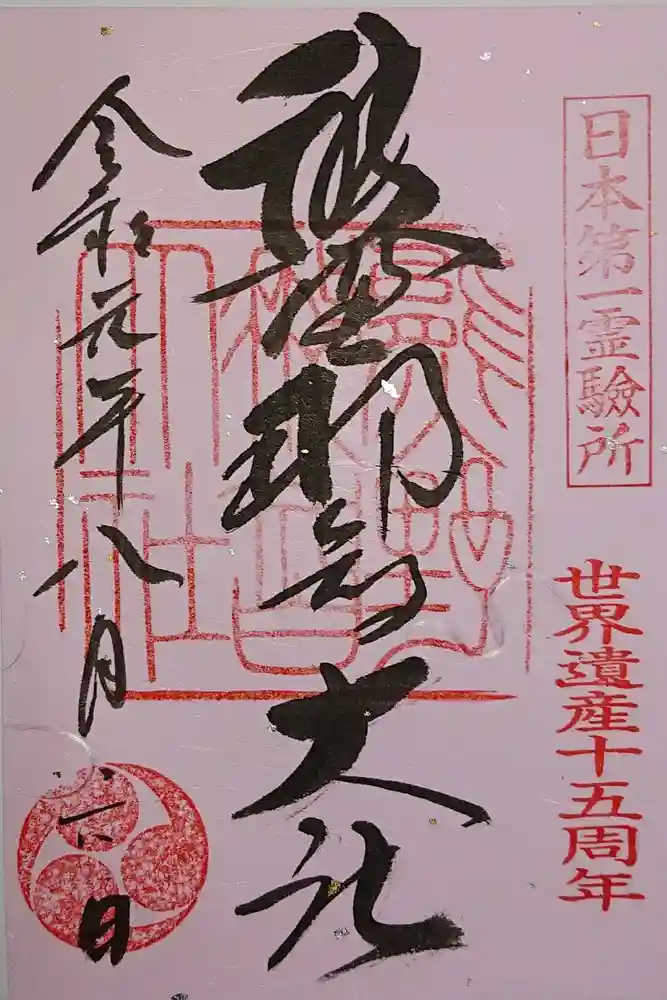 日本第一霊驗所
世界遺産十五周年
熊野那智大社
令和元年八月六日